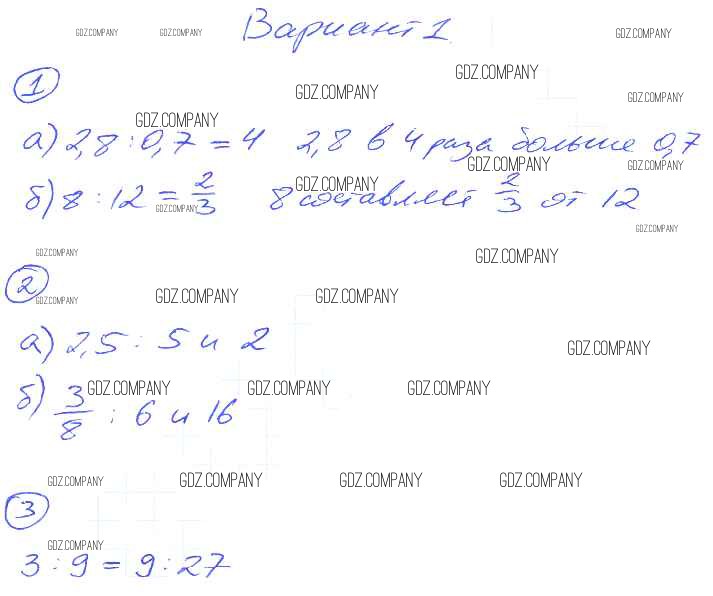 GDZ.COMPANY GDZ.COMPANY Вариант 1 GDZ.COMPANY
GDZ.COMPANY
1 GDZ.COMPANY GDZ.COMPANY
GDZ.COMPANY
а) 2,8 : 0,7 = 4 2,8 в 4 раза больше 0,7
GDZ.COMPANY GDZ.COMPANY
GDZ.COMPANY
б) 8 : 12 = 2/3 8 составляет 2/3 от 12
GDZ.COMPANY
GDZ.COMPANY
GDZ.COMPANY GDZ.COMPANY
2
GDZ.COMPANY GDZ.COMPANY GDZ.COMPANY
а) 2,5 : 5 и 2
GDZ.COMPANY
GDZ.COMPANY GDZ.COMPANY GDZ.COMPANY
б) 3/8 : 6 и 16
GDZ.COMPANY GDZ.COMPANY GDZ.COMPANY GDZ.COMPANY
3
GDZ.COMPANY
3 : 9 = 9 : 27